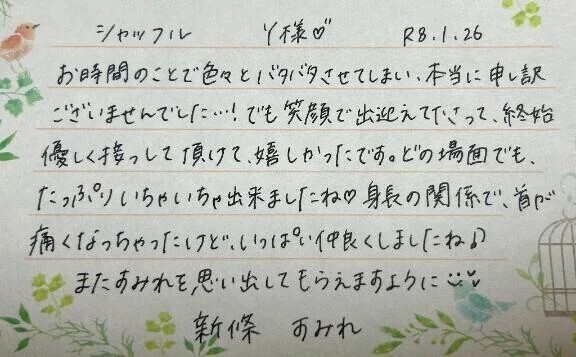 シャッフル Y様♡ R8.1.26
お時間のことで色々とバタバタさせてしまい、本当に申し訳
ございませんでした…!でも笑顔で出迎えて下さって、終始
優しく接っして頂けて、嬉しかったです。どの場面でも、
たっぷりいちゃいちゃ出来ましたね♡身長の関係で、首が
痛くなっちゃったけど、いっぱい仲良くしましたね♪
またすみれを思い出してもらえますように
新條 すみれ